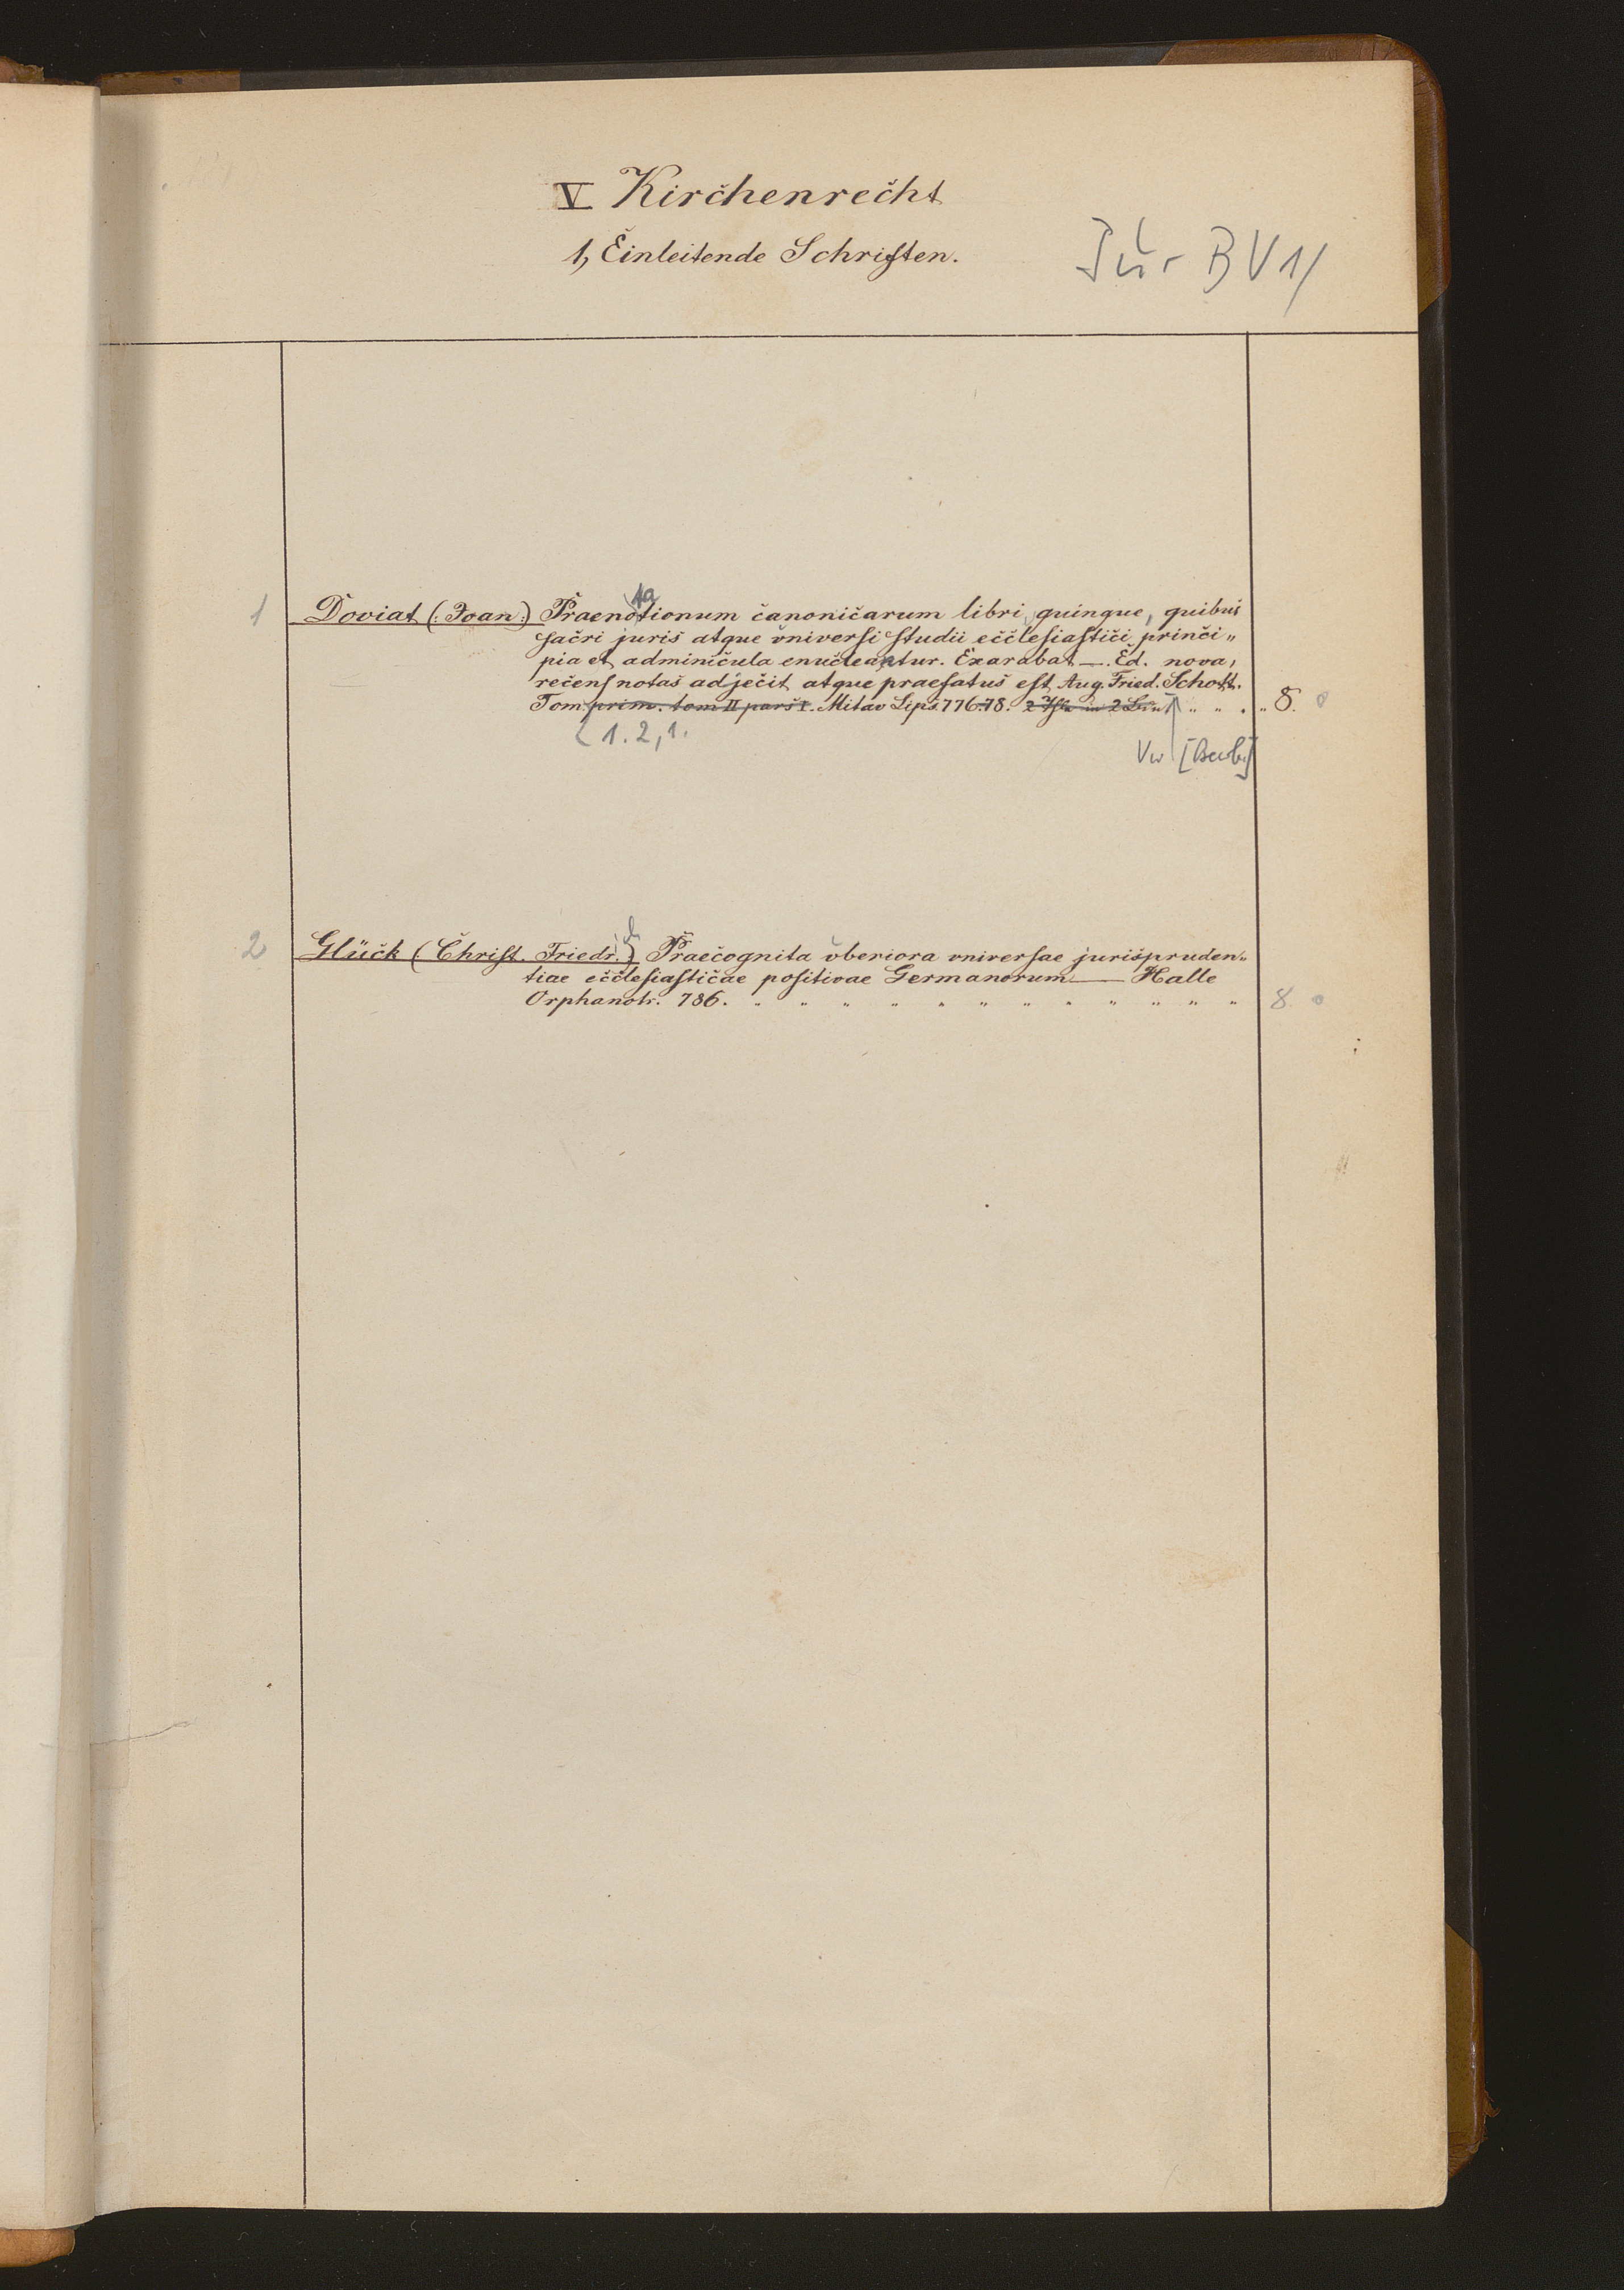 V Kirchenrecht
1, Einleitende Schriften.
Jur B V 1/
1 Doviat (: Joan:) Praenotionum canonicarum libri quinque, quibus
ta
sacri juris atque vniversi studii ecclesiastici princi„
pia et adminicula enucleantur. Exarabat —. Ed. nova,
recens notas adjecit atque praefatus est Aug. Fried. Schott.
Tom. prim. tom II pars I. Mitav Lips. 776-78. 2 in 2 " " . " 8. 0
1. 2, 1.
Vw
2 Glück (Christ. Friedr.) Praecognita vberiora vniversae jurispruden„
tiae ecclesiasticae positivae Germanorum — Halle
Orphanotr. 786. " " " " " " " " " " " " 8. 0